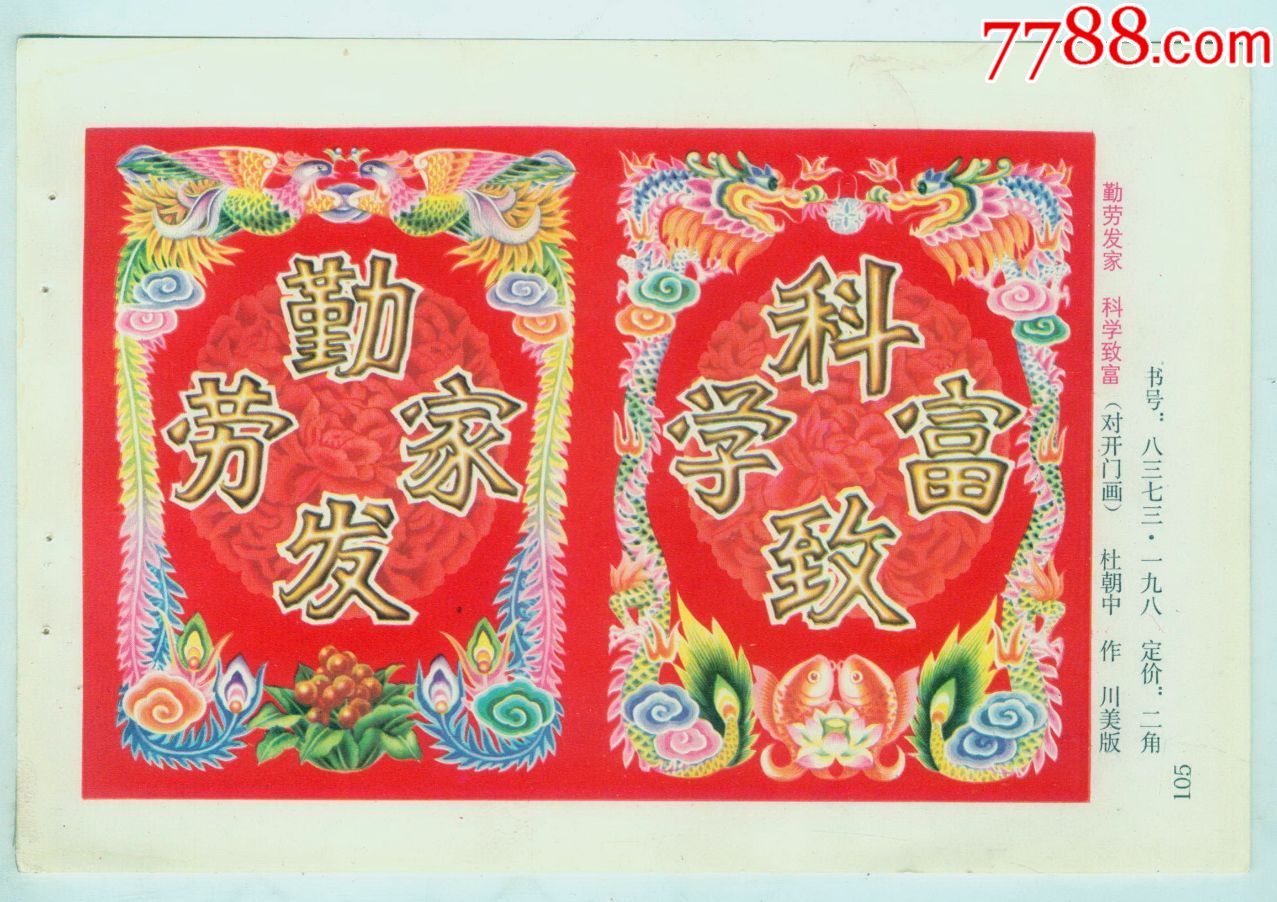 7788.com
勤劳发家
科学致富
勤劳发家 科学致富（对开门画） 杜朝中 作 川美版
书号：八三七三·一九八 定价：二角
105